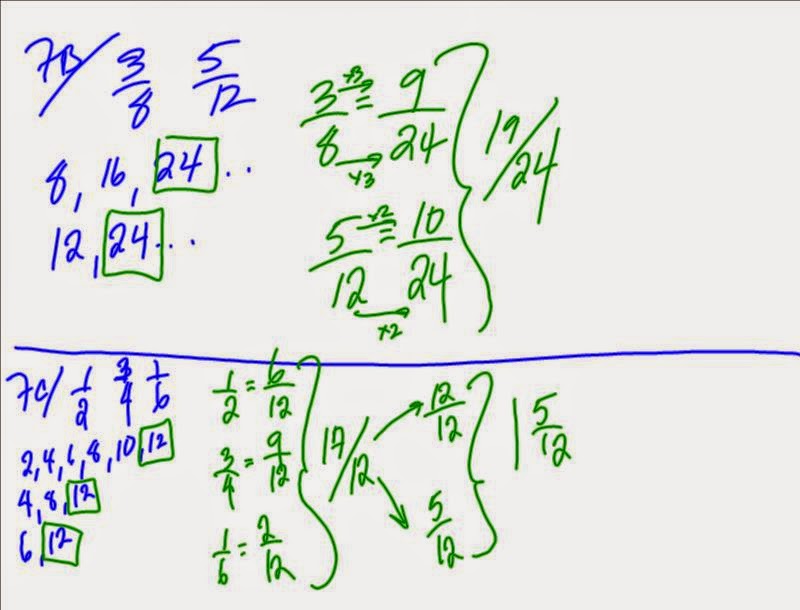 7B/ 3/8 5/12
8, 16, 24 ..
12, 24 ...
3/8 = 9/24
×3
×3
5/12 = 10/24
×2
×2
19/24
7C/ 1/2 3/4 1/6
2, 4, 6, 8, 10, 12
4, 8, 12
6, 12
1/2 = 6/12
3/4 = 9/12
1/6 = 2/12
17/12
12/12
5/12
1 5/12